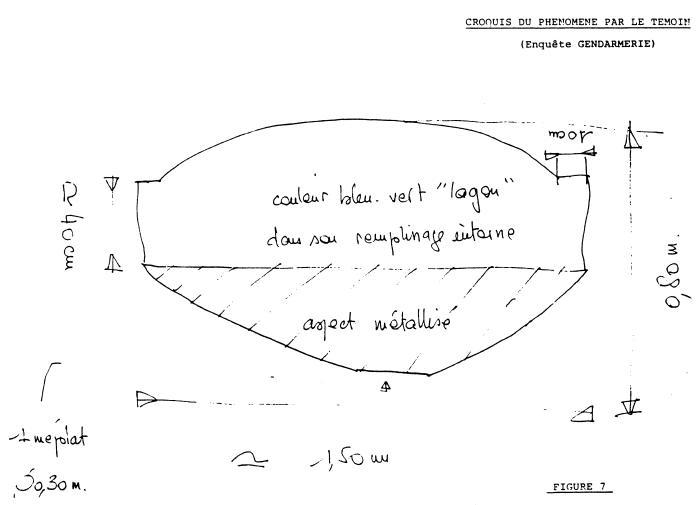 CROQUIS DU PHENOMENE PAR LE TEMOIN
(Enquête GENDARMERIE)
10cm
couleur bleu. vert "lagon"
dans son remplinage interne
≃ 40cm
0,80 m.
aspect métallisé
1 méplat
0,30 m.
≃ 1,50 m
FIGURE 7